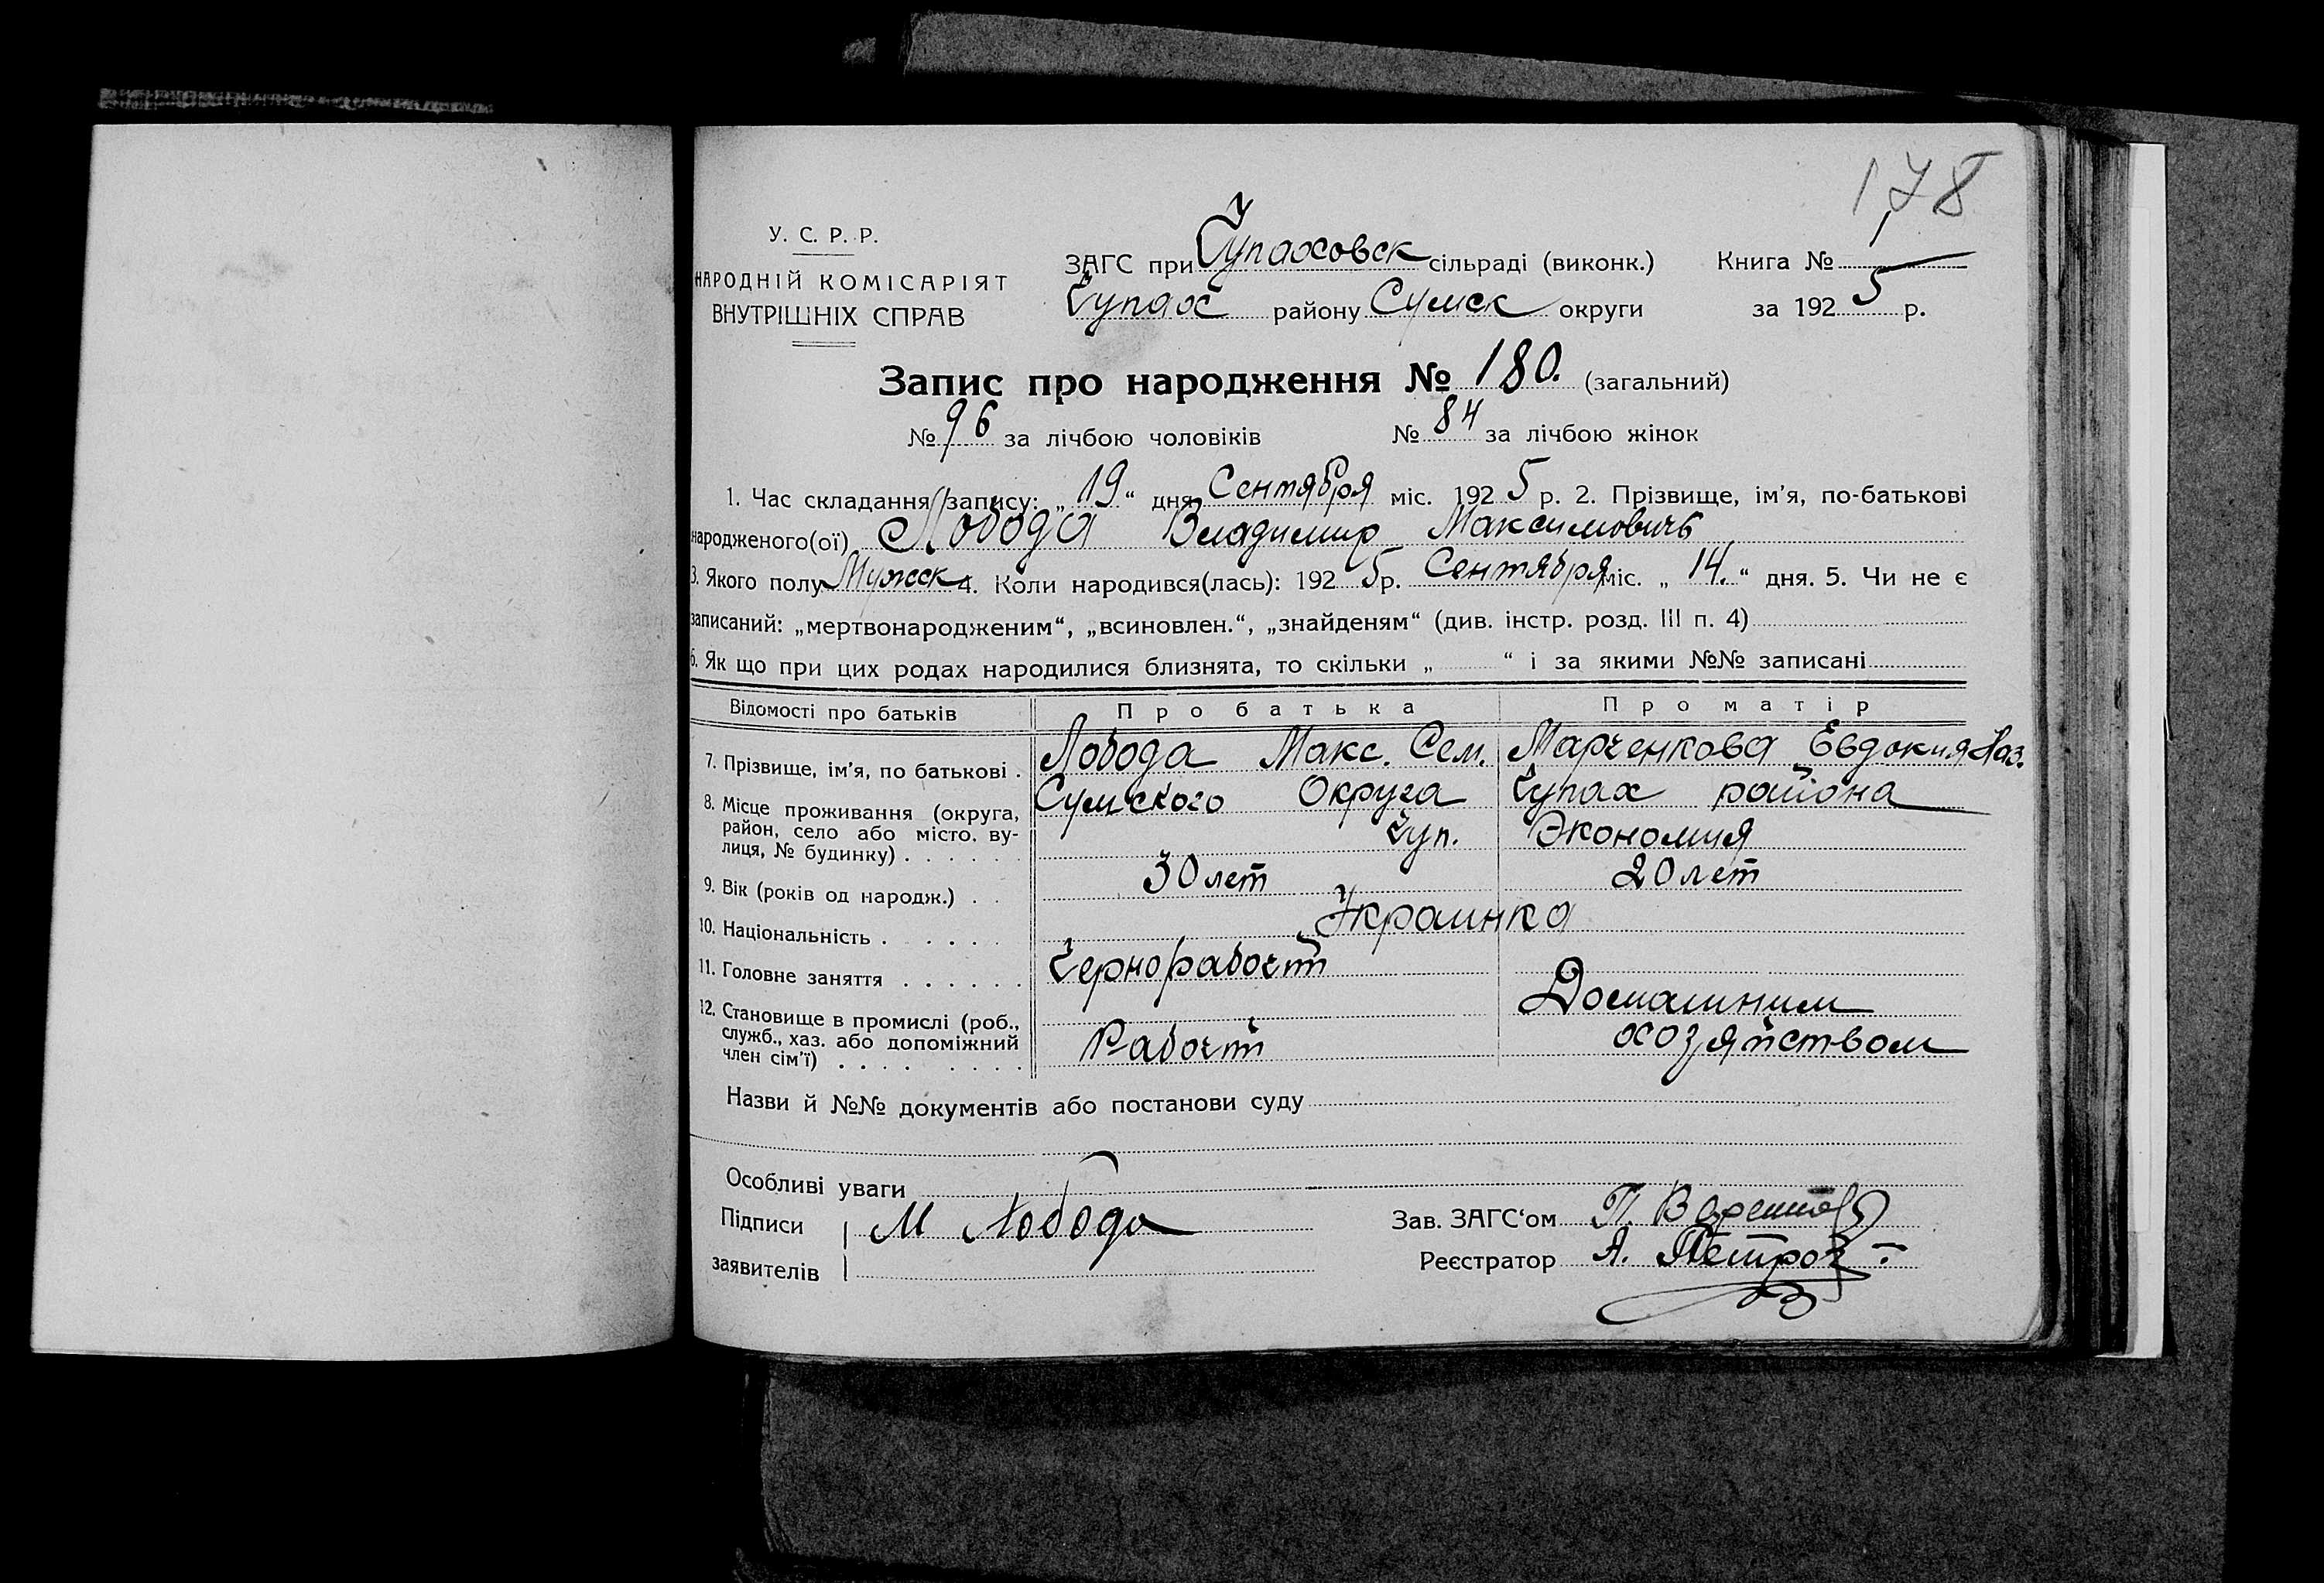 178
У. С. Р. Р.
НАРОДНІЙ КОМІСАРІЯТ
ВНУТРІШНІХ СПРАВ
ЗАГС при Чупаховск сільраді (виконк.) Книга № 1
Чупах району Сумск округи за 1925 р.
Запис про народження № 180. (загальний)
№ 96 за лічбою чоловіків № 84 за лічбою жінок
1. Час складання запису: „19“ дня Сентября міс. 1925 р. 2. Прізвище, ім'я, по-батькові
народженого(ої) Лобода Владимир Максимовичь
3. Якого полу Мужск 4. Коли народився(лась): 1925 р. Сентября міс. „14.“ дня. 5. Чи не є
записаний: „мертвонародженим“, „всиновлен.“, „знайденям“ (див. інстр. розд. III п. 4)
6. Як що при цих родах народилися близнята, то скільки „ “ і за якими №№ записані
Відомості про батьків Про батька Про матір
7. Прізвище, ім'я, по батькові . Лобода Макс. Сем. Марченкова Евдокия Наз.
8. Місце проживання (округа, район, село або місто, вулиця, № будинку) . . . . . . Сумского Округа Чупах района
Чуп. Экономия
9. Вік (років од народж.) . . 30 лет 20 лет
10. Національність . . . . . Украинка
11. Головне заняття . . . . . . Чернорабочий
12. Становище в промислі (роб., служб., хаз. або допоміжний член сім'ї) . . . . . . . . Рабочий Домашним хозяйством
Назви й №№ документів або постанови суду
Особливі уваги
Підписи М Лобода Зав. ЗАГС‘ом П.
заявителів Реєстратор А. Петров